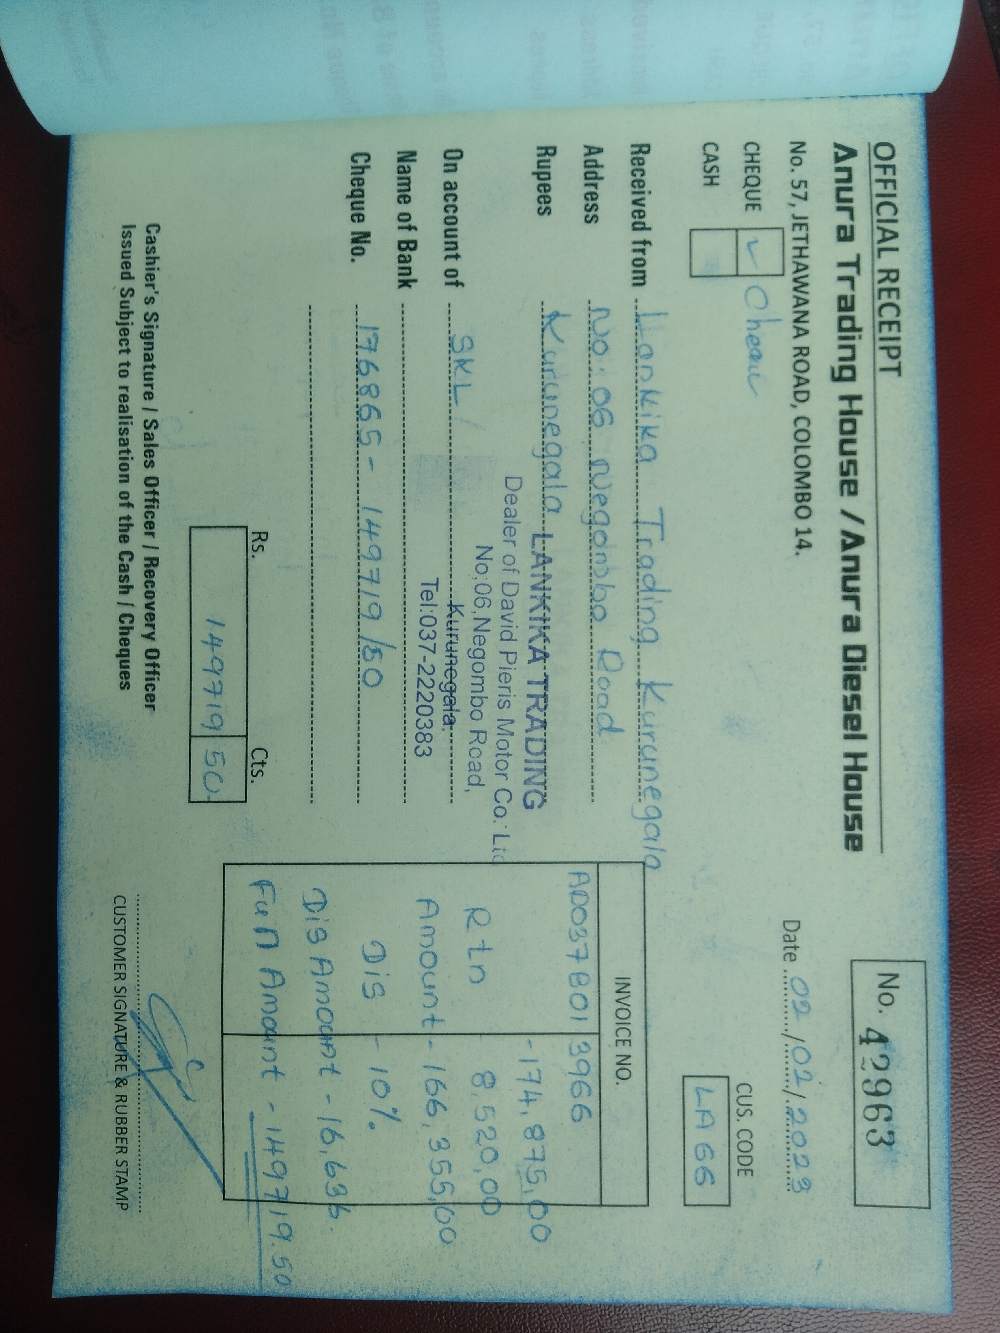 OFFICIAL RECEIPT
Anura Trading House / Anura Diesel House
No. 57, JETHAWANA ROAD, COLOMBO 14.
No. 42963
Date 02/02/2023
CHEQUE ✓ Cheque
CASH
CUS. CODE
LA 66
Received from Lankika Trading Kurunegala
Address No: 06 Negombo Road
Rupees Kurunegala
LANKIKA TRADING
Dealer of David Pieris Motor Co. Ltd
No;06,Negombo Road,
Kurunegala.
Tel:037-2220383
On account of SKL /
Name of Bank
Cheque No. 176865 - 149719/50
INVOICE NO.
AD037B013966
-174,875,00
Rtn 8,520,00
Amount - 166,355,00
Dis - 10%
Dis Amount - 16,635.
Full Amount - 149719.50
Rs. Cts.
149719 50
Cashier's Signature / Sales Officer / Recovery Officer
Issued Subject to realisation of the Cash / Cheques
CUSTOMER SIGNATURE & RUBBER STAMP